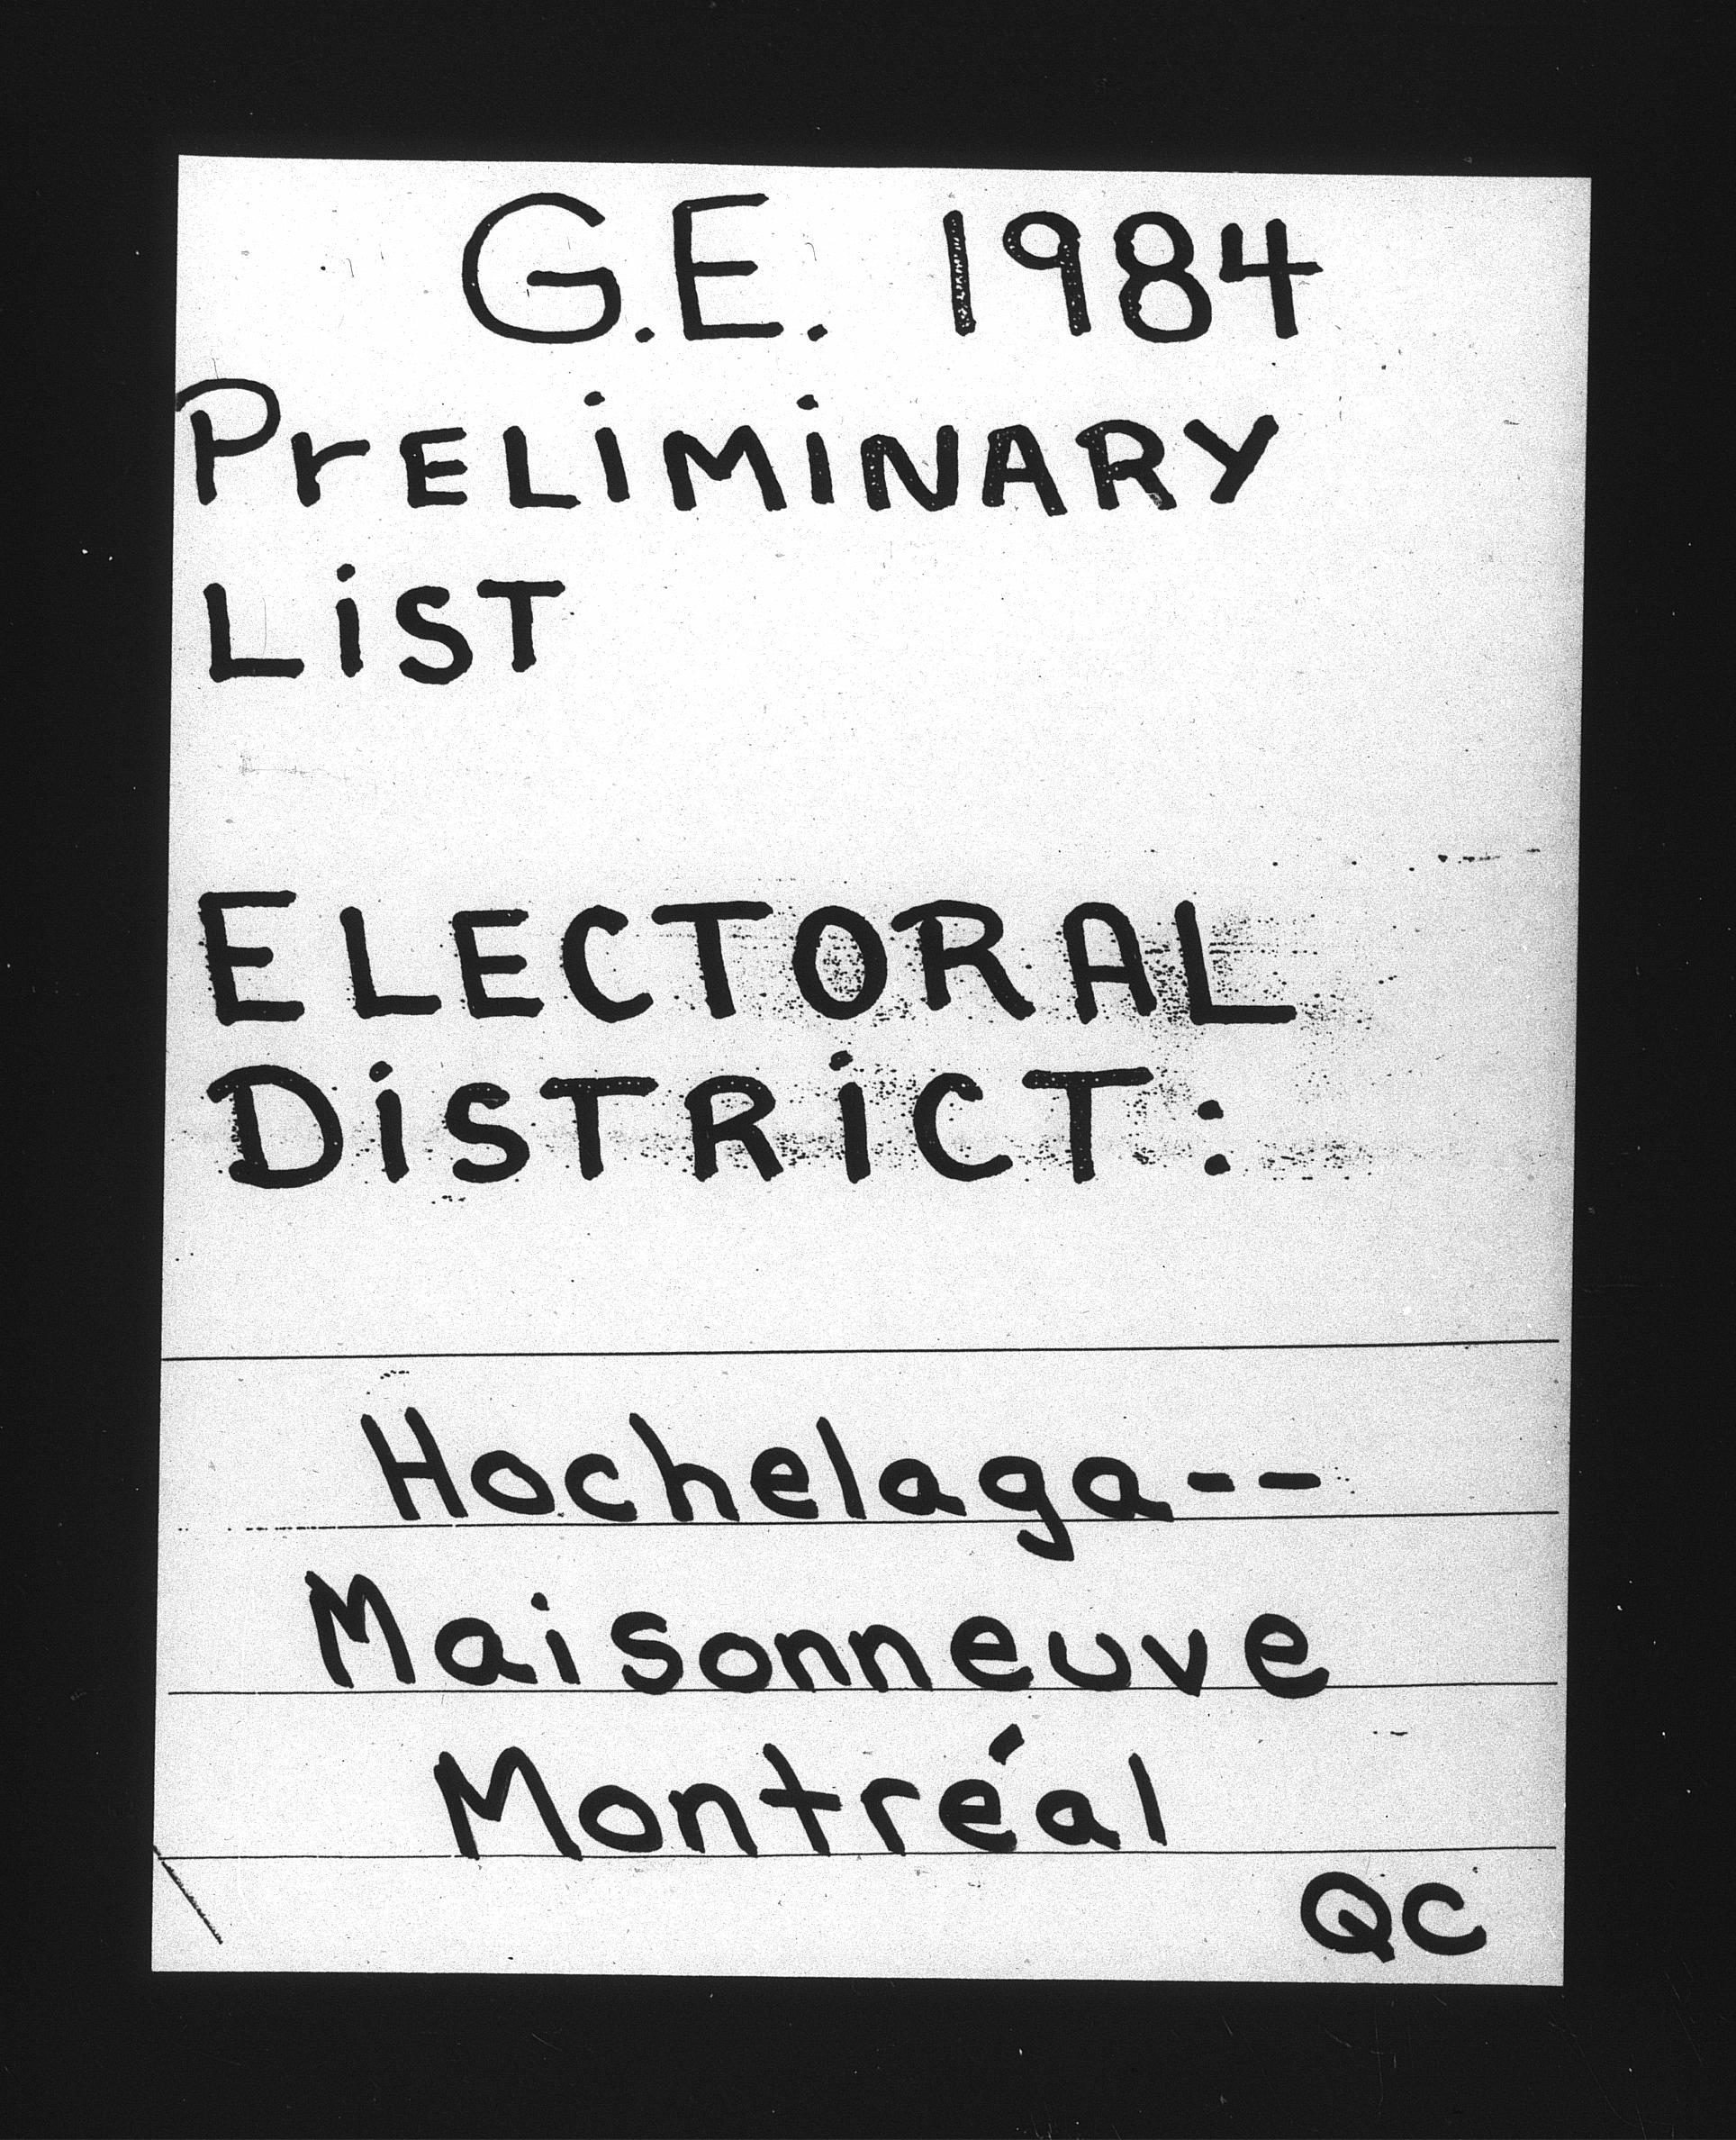 G.E. 1984
PRELIMINARY
LIST
ELECTORAL
DISTRICT:
Hochelaga--
Maisonneuve
Montréal
QC